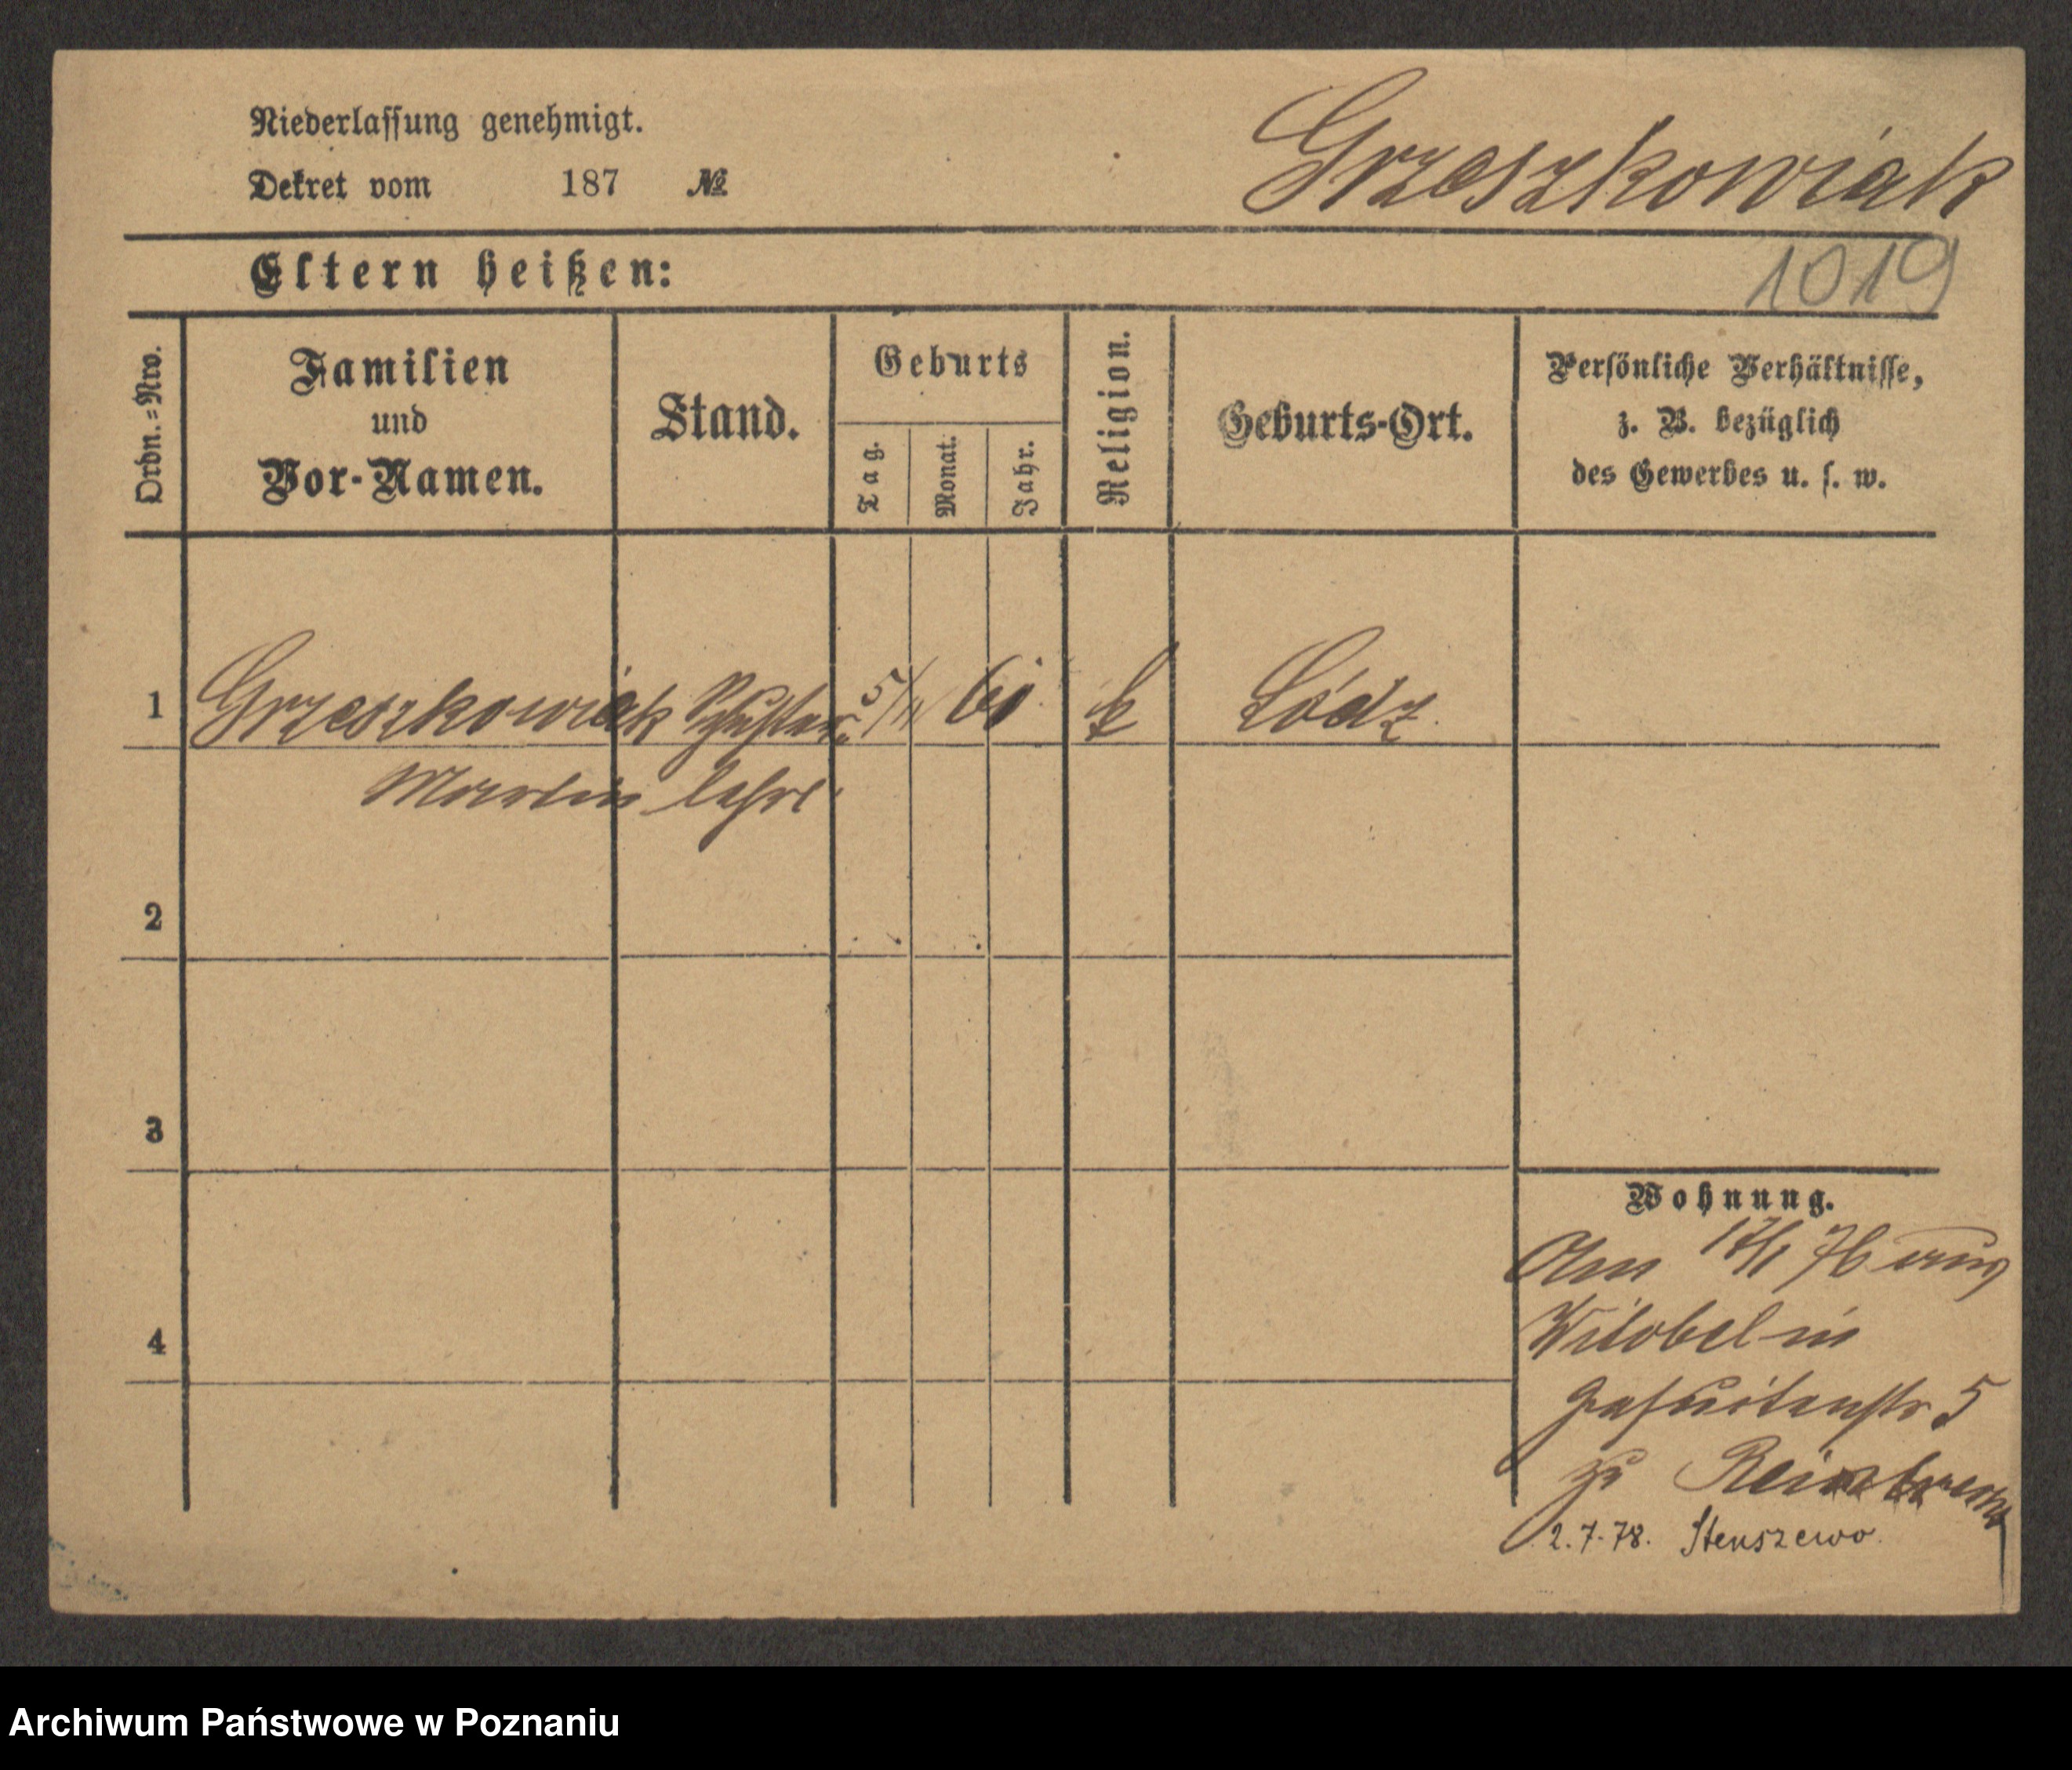 Niederlassung genehmigt.
Dekret vom 187 №
Grzeszkowiak
Eltern heißen:
1019
Ordn.=Nro.
Familien
und
Vor-Namen.
Stand.
Geburts
Tag.
Monat.
Jahr.
Religion.
Geburts-Ort.
Persönliche Verhältnisse,
z. B. bezüglich
des Gewerbes u. s. w.
1 Grzeszkowiak Schuster 5/11 61 k Łódz
Martin lehrl
2
3
4
Wohnung.
Am 17/1 76 aus
Witobel in
Jesuitenstr 5
zu
2.7.78. Stenszewo.
Archiwum Państwowe w Poznaniu